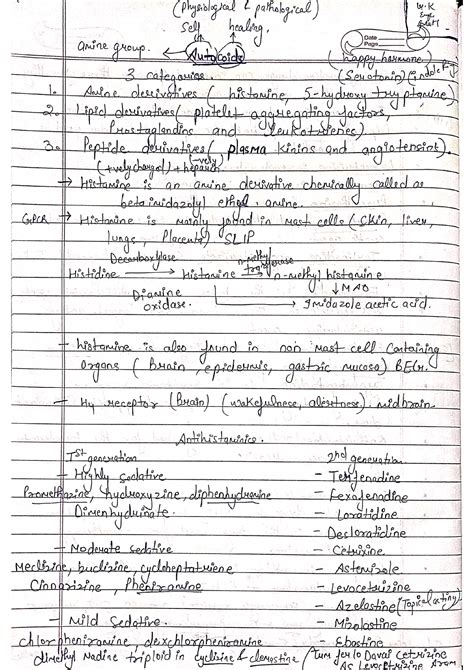 (Physiological & pathological)
Self healing.
by-K
amine group. Autacoids
Date
Page
(happy hormone)
3 categories. (Serotonin) (indole
1. Amine derivatives ( histamine, 5-hydroxy tryptamine)
2. Lipid derivatives ( platelet aggregating factors,
Prostaglandins and leukotrienes)
3. Peptide derivatives ( plasma kinins and angiotensin).
(+vely charge) + heparin (-vely)
→ Histamine is an amine derivative chemically called as
betaimidazolyl ethyl. amine.
GPCR → Histamine is mainly found in mast cells (skin, liver,
lungs, Placenta) SLIP
Decarboxylase n-methyl transferase
Histidine → Histamine → n-methyl histamine
Diamine ↓MAO
oxidase. → Imidazole acetic acid.
- histamine is also found in non mast cell containing
organs ( Brain, epidermis, gastric mucosa) BEG.
- H4 receptor (Brain) (wakefulness, alertness). midbrain.
Antihistaminics.
Ist generation 2nd generation
- Highly Sedative - Terfenadine
Promethazine, hydroxyzine, diphenhydramine - Fexofenadine
Dimenhydrinate. - Loratidine
- Desloratidine
- Moderate sedative - Cetrizine
Meclizine, buclizine, cycloheptatriene - Astemizole
Cinnarizine, Pheniramine - Levocetrizine
- Azelastine (Topical acting)
- Mild Sedative. - Mizolastine
chlorpheniramine, dexchlorpheniramine - Ebastine
in cyclizine & clemastine (Tum jero Davai Cetrizine
as Levocetrizine